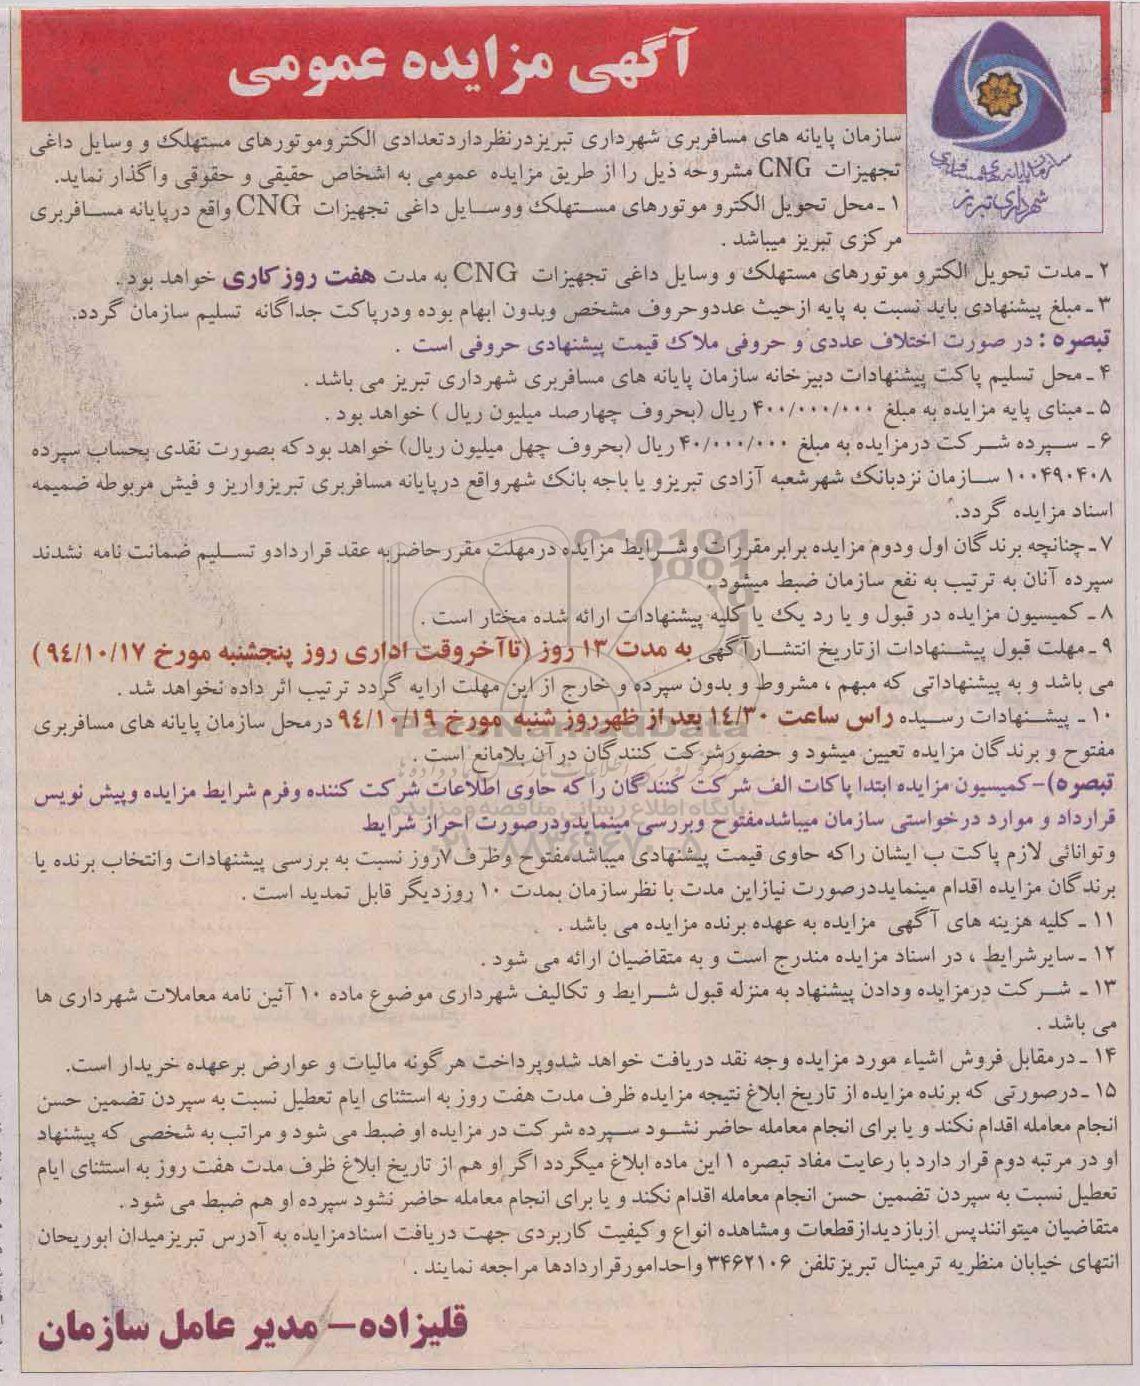 آگهی مزایده عمومی
سازمان پایانه های مسافربری شهرداری تبریز
سازمان پایانه های مسافربری شهرداری تبریزدرنظرداردتعدادی الکتروموتورهای مستهلک و وسایل داغی
تجهیزات CNG مشروحه ذیل را از طریق مزایده عمومی به اشخاص حقیقی و حقوقی واگذار نماید.
۱ ـ محل تحویل الکترو موتورهای مستهلک ووسایل داغی تجهیزات CNG واقع درپایانه مسافربری
مرکزی تبریز میباشد .
۲ ـ مدت تحویل الکترو موتورهای مستهلک و وسایل داغی تجهیزات CNG به مدت هفت روزکاری خواهد بود .
۳ ـ مبلغ پیشنهادی باید نسبت به پایه ازحیث عددوحروف مشخص وبدون ابهام بوده ودرپاکت جداگانه تسلیم سازمان گردد.
تبصره : در صورت اختلاف عددی و حروفی ملاک قیمت پیشنهادی حروفی است .
۴ ـ محل تسلیم پاکت پیشنهادات دبیرخانه سازمان پایانه های مسافربری شهرداری تبریز می باشد .
۵ ـ مبنای پایه مزایده به مبلغ ۴۰۰/۰۰۰/۰۰۰ ریال (بحروف چهارصد میلیون ریال ) خواهد بود .
۶ ـ سپرده شرکت درمزایده به مبلغ ۴۰/۰۰۰/۰۰۰ ریال (بحروف چهل میلیون ریال) خواهد بودکه بصورت نقدی بحساب سپرده
۱۰۰۴۹۰۴۰۸ سازمان نزدبانک شهرشعبه آزادی تبریزو یا باجه بانک شهرواقع درپایانه مسافربری تبریزواریز و فیش مربوطه ضمیمه
اسناد مزایده گردد.
۷ ـ چنانچه برندگان اول ودوم مزایده برابرمقررات وشرایط مزایده درمهلت مقررحاضربه عقد قراردادو تسلیم ضمانت نامه نشدند
سپرده آنان به ترتیب به نفع سازمان ضبط میشود .
۸ ـ کمیسیون مزایده در قبول و یا رد یک یا کلیه پیشنهادات ارائه شده مختار است .
۹ ـ مهلت قبول پیشنهادات ازتاریخ انتشارآگهی به مدت ۱۳ روز (تاآخروقت اداری روز پنجشنبه مورخ ۹٤/۱۰/۱۷ )
می باشد و به پیشنهاداتی که مبهم ، مشروط و بدون سپرده و خارج از این مهلت ارایه گردد ترتیب اثر داده نخواهد شد .
۱۰ ـ پیشنهادات رسیده راس ساعت ۱٤/۳۰ بعد از ظهرروز شنبه مورخ ۹٤/۱۰/۱۹ درمحل سازمان پایانه های مسافربری
مفتوح و برندگان مزایده تعیین میشود و حضورشرکت کنندگان درآن بلامانع است .
تبصره)-کمیسیون مزایده ابتدا پاکات الف شرکت کنندگان راکه حاوی اطلاعات شرکت کننده وفرم شرایط مزایده وپیش نویس
قرارداد و موارد درخواستی سازمان میباشدمفتوح وبررسی مینمایدودرصورت احراز شرایط
وتوانائی لازم پاکت ب ایشان راکه حاوی قیمت پیشنهادی میباشدمفتوح وظرف۷روز نسبت به بررسی پیشنهادات وانتخاب برنده یا
برندگان مزایده اقدام مینمایددرصورت نیازاین مدت با نظرسازمان بمدت ۱۰ روزدیگر قابل تمدید است .
۱۱ ـ کلیه هزینه های آگهی مزایده به عهده برنده مزایده می باشد .
۱۲ ـ سایرشرایط ، در اسناد مزایده مندرج است و به متقاضیان ارائه می شود .
۱۳ ـ شرکت درمزایده ودادن پیشنهاد به منزله قبول شرایط و تکالیف شهرداری موضوع ماده ۱۰ آئین نامه معاملات شهرداری ها
می باشد .
۱۴ ـ درمقابل فروش اشیاء مورد مزایده وجه نقد دریافت خواهد شدوپرداخت هرگونه مالیات و عوارض برعهده خریدار است.
۱۵ ـ درصورتی که برنده مزایده از تاریخ ابلاغ نتیجه مزایده ظرف مدت هفت روز به استثنای ایام تعطیل نسبت به سپردن تضمین حسن
انجام معامله اقدام نکند و یا برای انجام معامله حاضر نشود سپرده شرکت در مزایده او ضبط می شود و مراتب به شخصی که پیشنهاد
او در مرتبه دوم قرار دارد با رعایت مفاد تبصره ۱ این ماده ابلاغ میگردد اگر او هم از تاریخ ابلاغ ظرف مدت هفت روز به استثنای ایام
تعطیل نسبت به سپردن تضمین حسن انجام معامله اقدام نکند و یا برای انجام معامله حاضر نشود سپرده او هم ضبط می شود .
متقاضیان میتوانندپس ازبازدیدازقطعات ومشاهده انواع وکیفیت کاربردی جهت دریافت اسنادمزایده به آدرس تبریزمیدان ابوریحان
انتهای خیابان منظریه ترمینال تبریزتلفن ۳۴۶۲۱۰۶ واحدامورقراردادها مراجعه نمایند .
قلیزاده- مدیر عامل سازمان